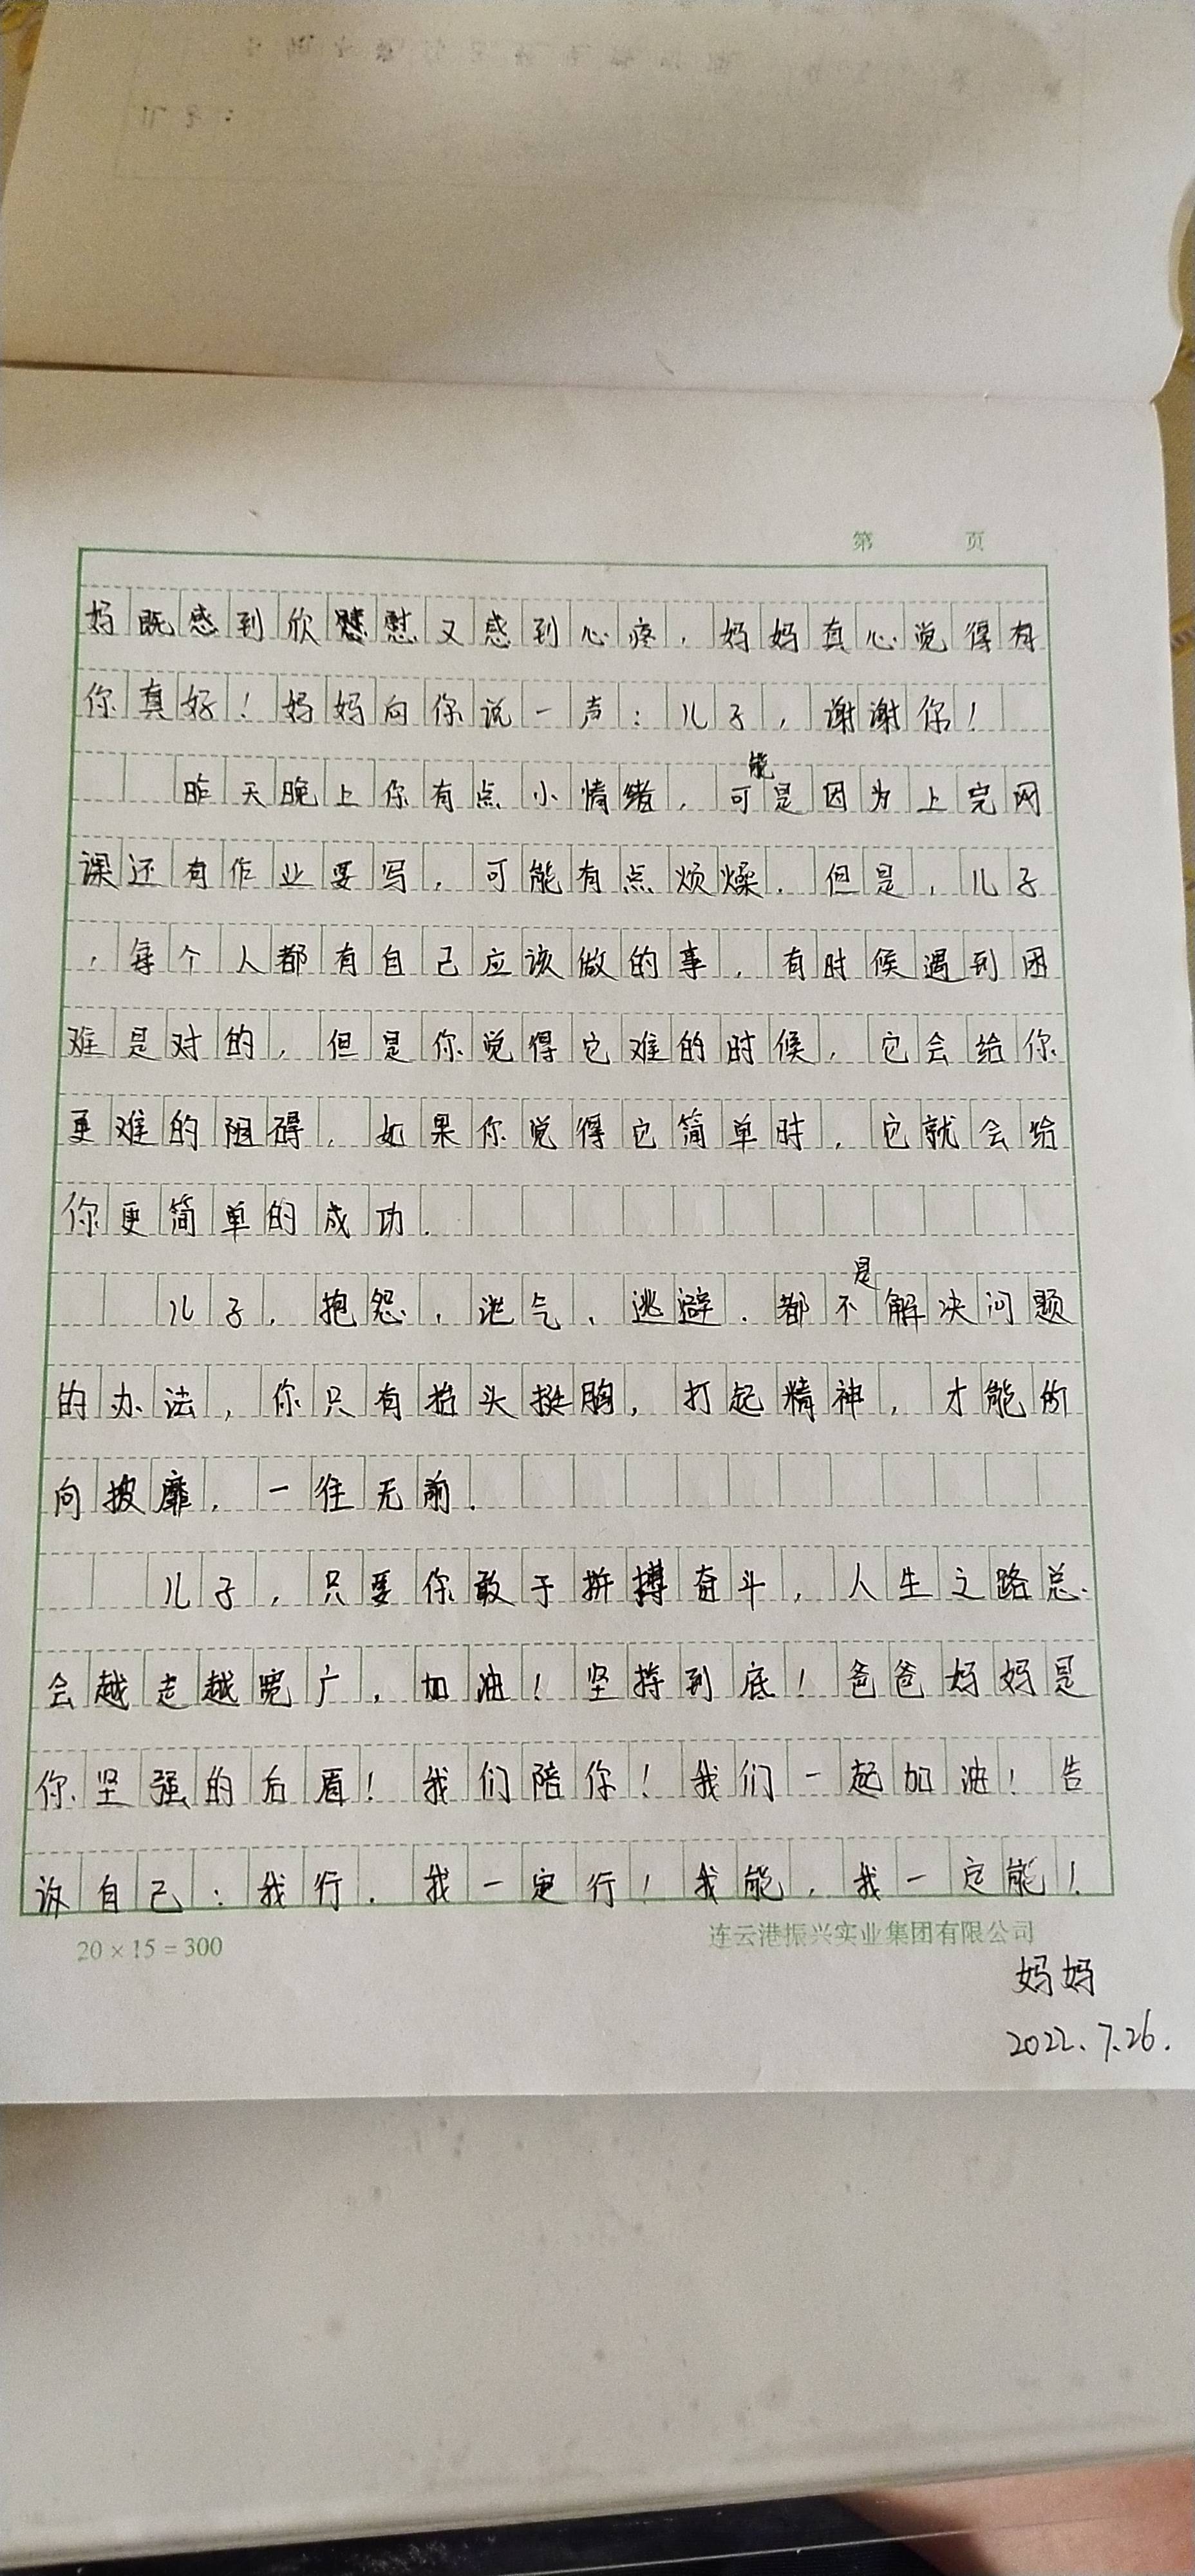 第 页
妈既感到欣慰又感到心疼，妈妈真心觉得有
你真好！妈妈向你说一声：儿子，谢谢你！
昨天晚上你有点小情绪，可能是因为上完网
课还有作业要写，可能有点烦燥．但是，儿子
，每个人都有自己应该做的事，有时候遇到困
难是对的，但是你觉得它难的时候，它会给你
更难的阻碍，如果你觉得它简单时，它就会给
你更简单的成功．
儿子，抱怨、泄气、逃避．都不是解决问题
的办法，你只有抬头挺胸，打起精神，才能所
向披靡，一往无前．
儿子，只要你敢于拼搏奋斗，人生之路总
会越走越宽广，加油！坚持到底！爸爸妈妈是
你坚强的后盾！我们陪你！我们一起加油！告
诉自己：我行．我一定行！我能，我一定能！
20×15=300
连云港振兴实业集团有限公司
妈妈
2022.7.26.